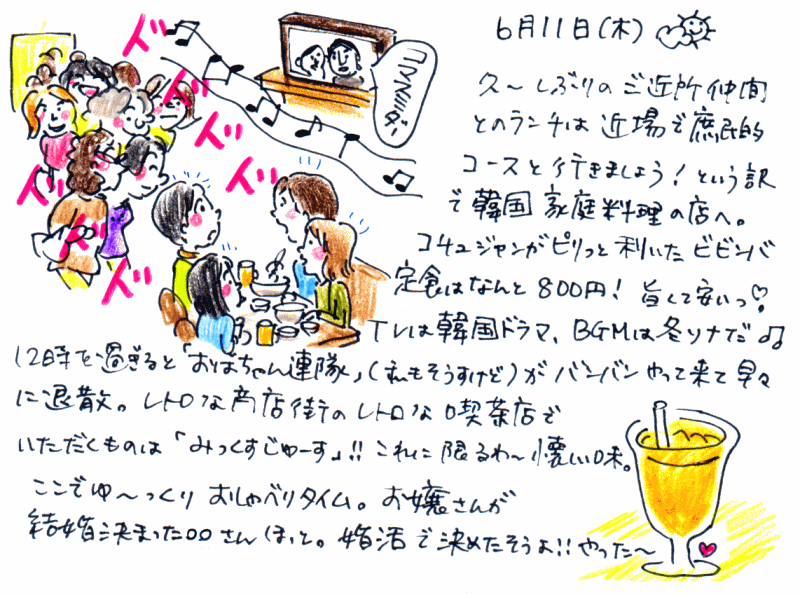 6月11日(木)
久〜しぶりのご近所仲間
とのランチは近場で庶民的
コースと行きましょう!という訳
で韓国家庭料理の店へ。
コチュジャンがピリっと利いたビビンバ
定食はなんと800円!旨くて安いっ♡
TVは韓国ドラマ、BGMは冬ソナだ♫
12時を過ぎると「おばちゃん連隊」(私もそうすけど)がバンバンやって来て早々
に退散。レトロな商店街のレトロな喫茶店で
いただくものは「みっくすじゅーす」!!これに限るわ〜懐しい味。
ここでゆ〜っくりおしゃべりタイム。お嬢さんが
結婚決まった○○さんほっと。婚活で決めたそうよ!!やった〜
ドッ
ドッ
ドッ
ドッ
ドッ
ドッ
ドッ